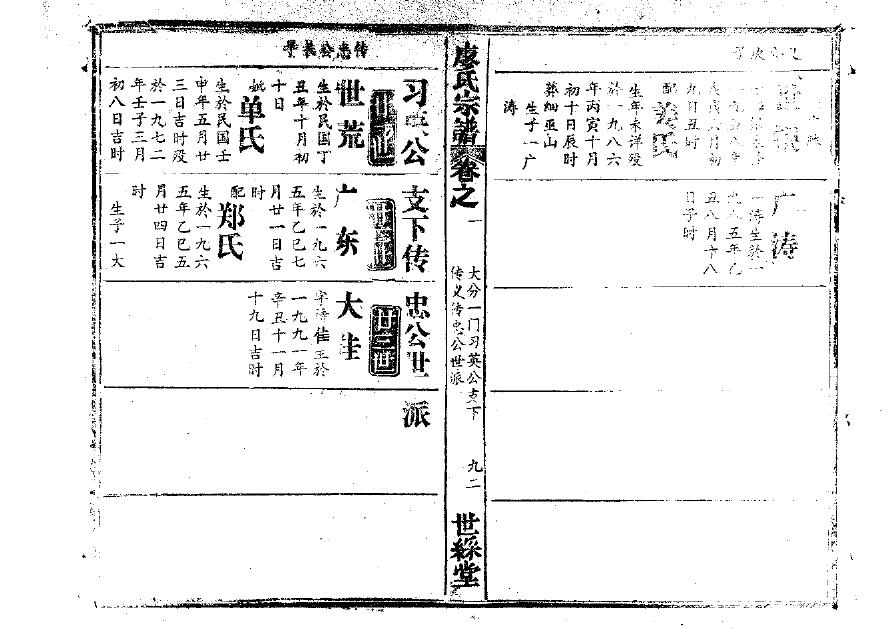 生年未详没
於一九八六
年丙寅十月
初十日辰时
葬细巫山
生子一广
涛
配
姜氏
九日丑时
广涛
一涛生於一
九八五年乙
丑八月十八
日子时
廖氏宗谱
卷之一
大分一门习英公支下
传义传忠公世派
九二
世綵堂
传忠公裁学
习英公支下传忠公世派
世荒
生於民国丁
丑年十月初
十日
妣
单氏
生於民国壬
申年五月廿
三日吉时殁
於一九七二
年壬子三月
初八日吉时
广东
生於一九六
五年乙巳七
月廿一日吉
时
配
郑氏
生於一九六
五年乙巳五
月廿四日吉
时
生子一大
廿三世
大佳
一九九一年
辛丑十一月
十九日吉时